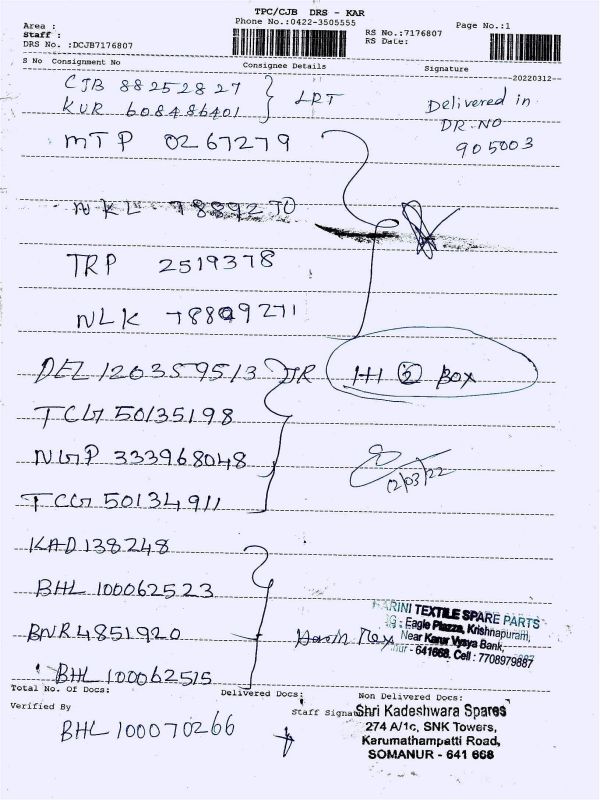 TPC/CJB DRS - KAR
Area :
Phone No.:0422-3505555
Page No.:1
Staff :
RS No.:7176807
DRS No. :DCJB7176807
RS Date:
S No Consignment No
Consignee Details
Signature
20220312
CJB 88252827
KUR 608486401
LRT
Delivered in
DR.NO
905003
MTP 0267279
NKL 7889270
TRP 2519378
NLK 78809271
DEL 120359513
DR
1+1 2 BOX
TCG 50135198
NGP 333968048
12/03/22
TCG 50134911
KAD 138248
BHL 100062523
BNR 4851920
BHL 100062515
HARINI TEXTILE SPARE PARTS
Eagle Plazza, Krishnapuram,
Near Karur Vysya Bank,
641668. Cell : 7708979887
Total No. Of Docs:
Delivered Docs:
Non Delivered Docs:
Verified By
Staff Signature
BHL 100070266
Shri Kadeshwara Spares
274 A/1c, SNK Towers,
Karumathampatti Road,
SOMANUR - 641 668